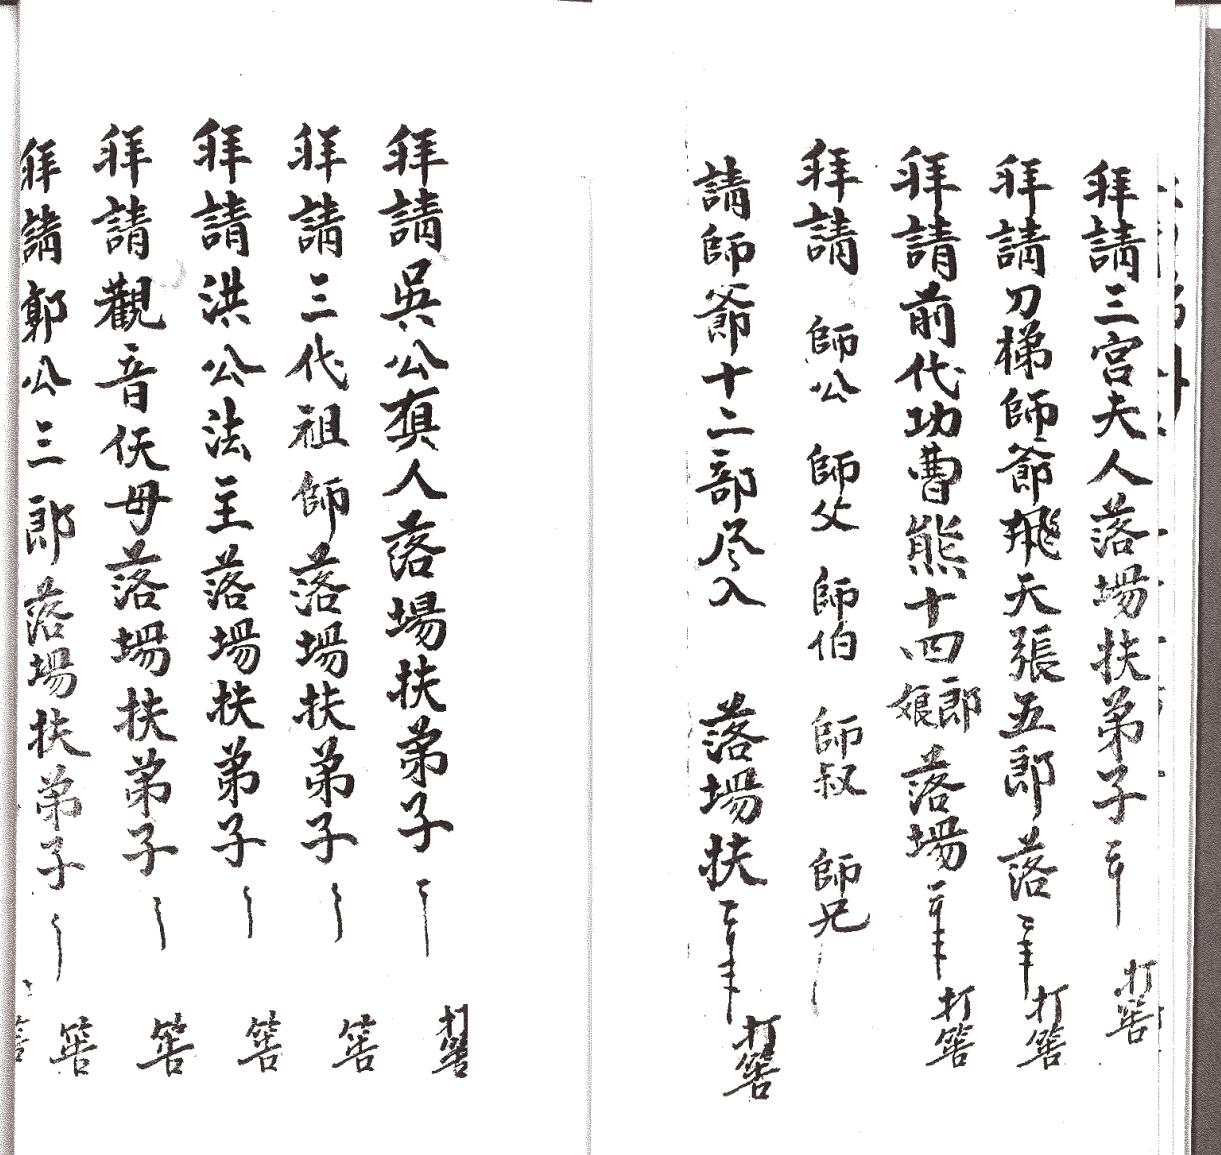 拜請三宮夫人落場扶弟子 打筶
拜請刀梯師爺飛天張五郎落 打筶
拜請前代功曹熊十四郎娘落場 打筶
拜請 師公 師父 師伯 師叔 師兄
請師爺十二部尽入 落場扶 打筶
拜請吳公真人落場扶弟子 打筶
拜請三代祖師落場扶弟子 筶
拜請洪公法主落場扶弟子 筶
拜請觀音佛母落場扶弟子 筶
拜請鄭公三郎落場扶弟子 筶
筶